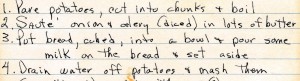 1. Pare potatoes, cut into chunks & boil
2. Sauté onion & celery (diced) in lots of butter
3. Put bread, cubed, into a bowl & pour some
milk on the bread & set aside
4. Drain water off potatoes & mash them